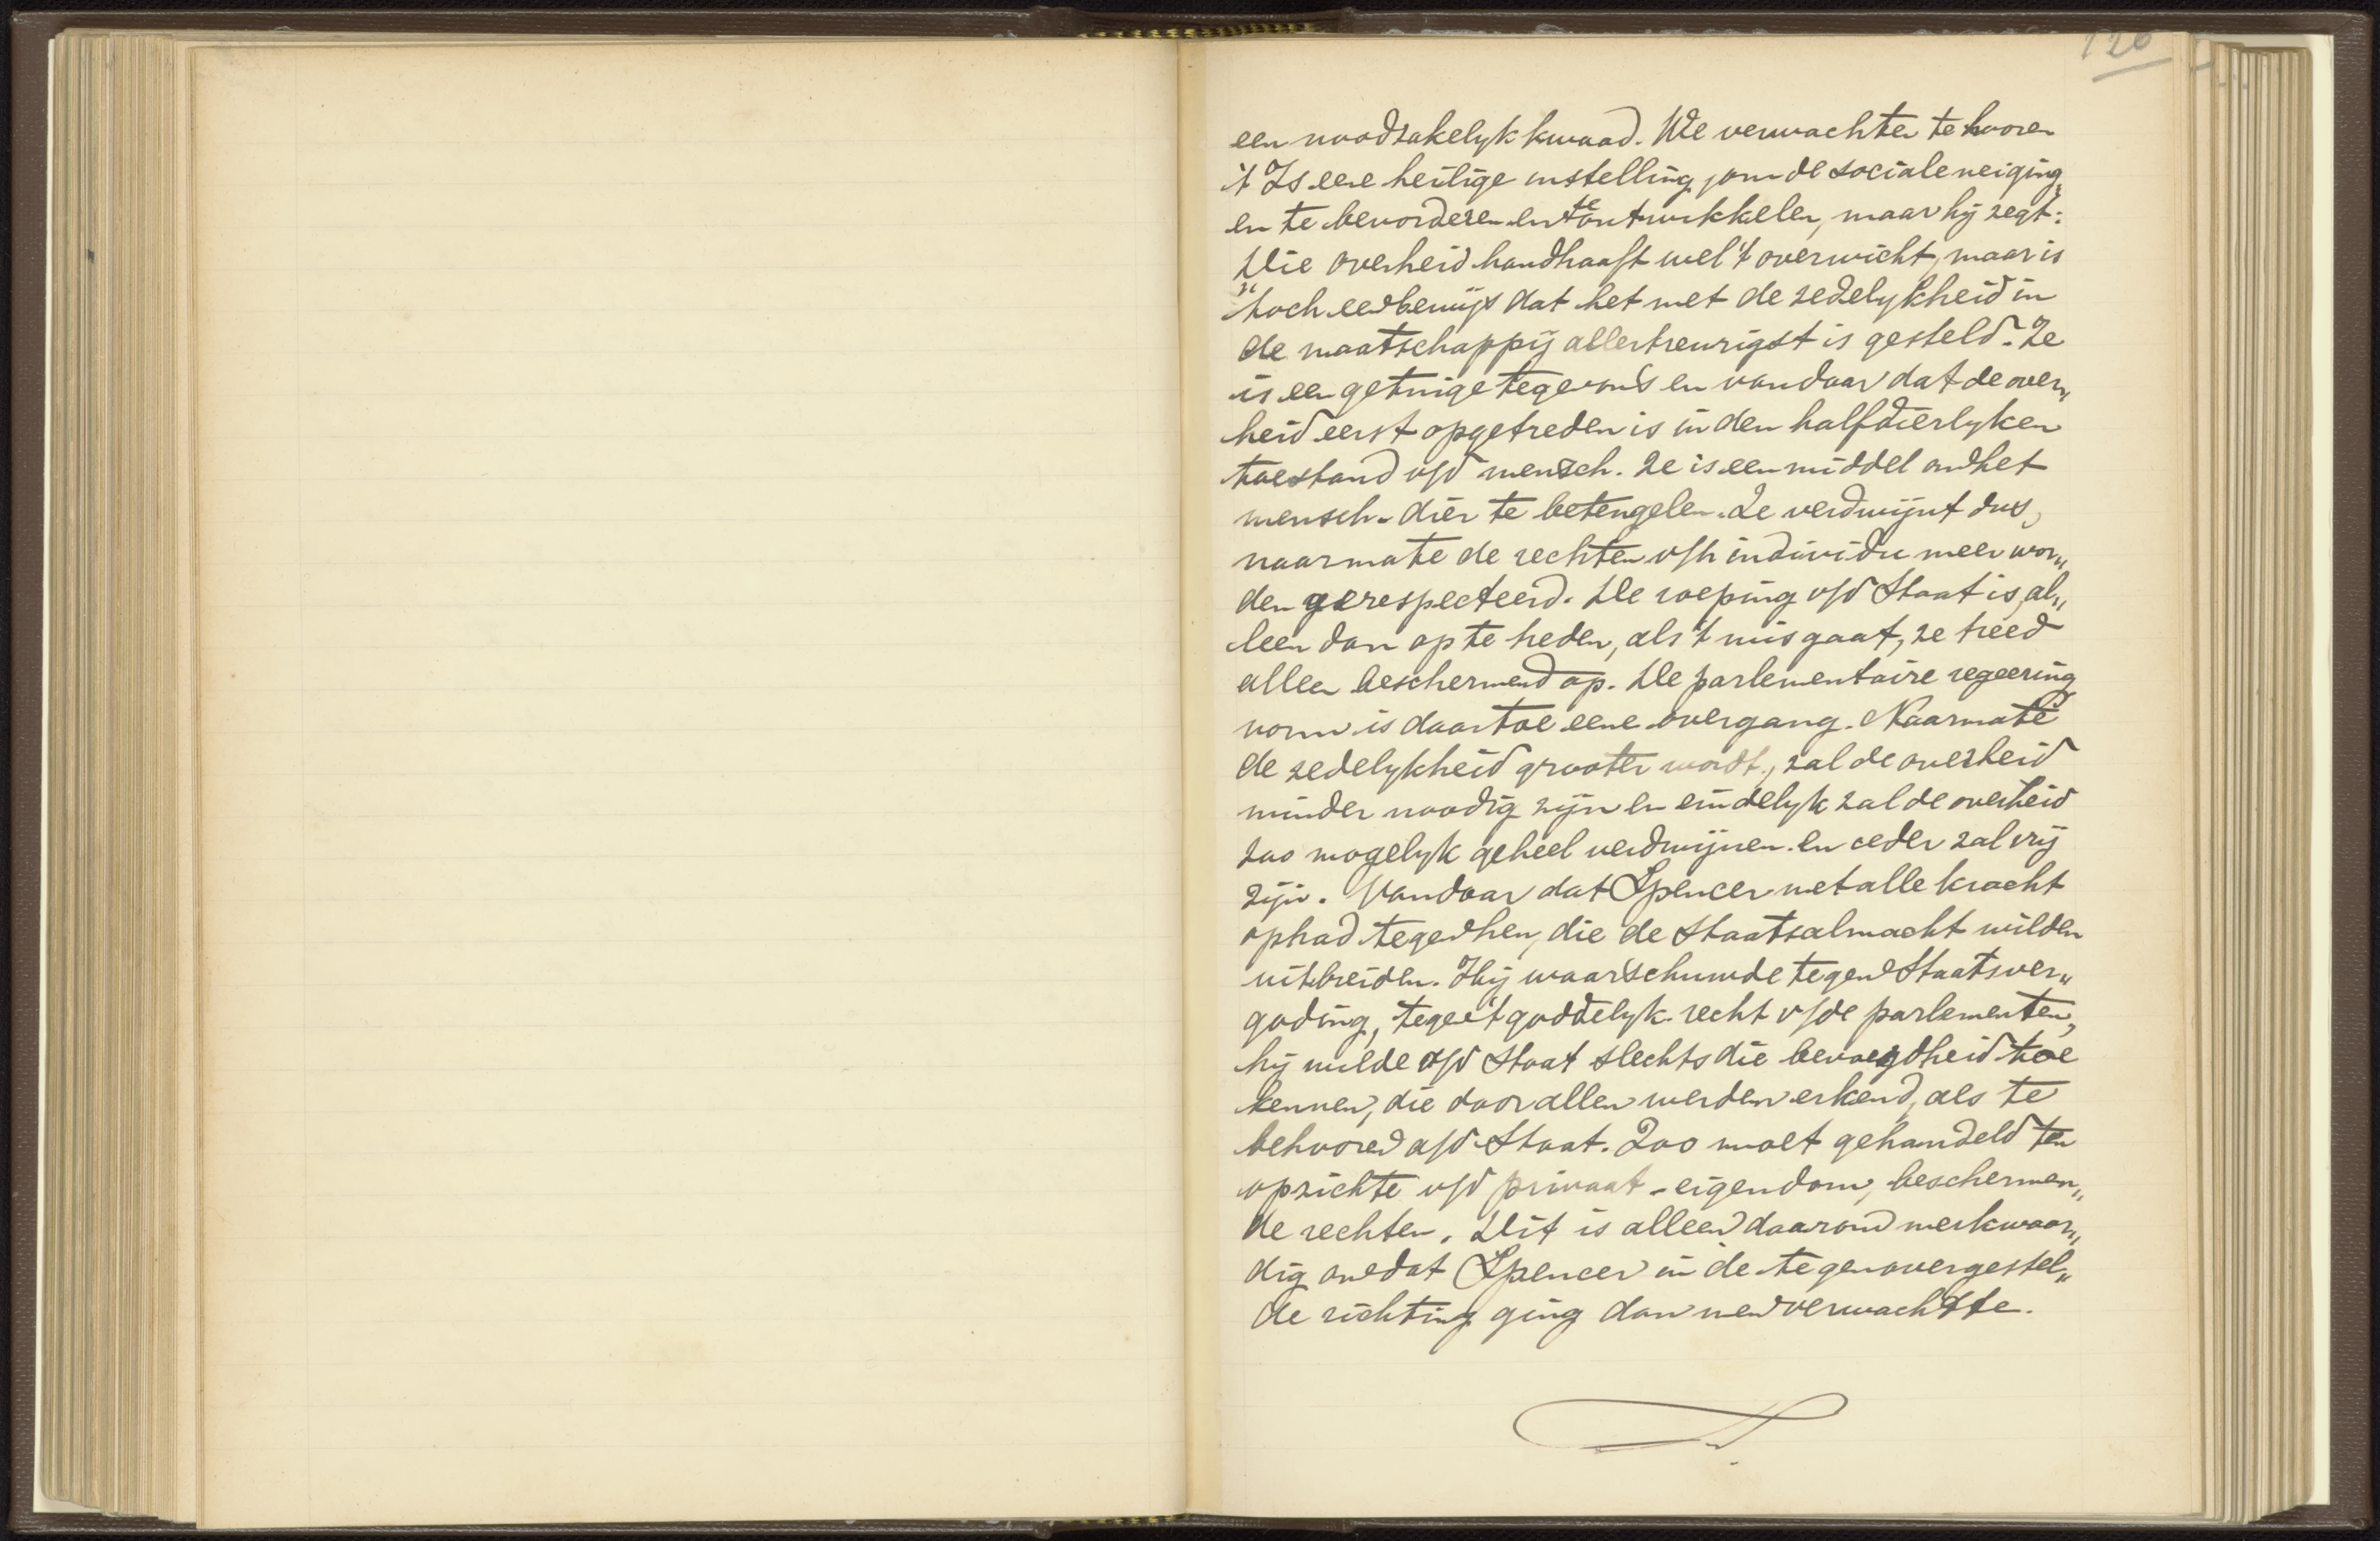 126
een noodzakelyk kwaad. We verwachten te hooren
't Is eene heilige instelling, om de sociale neiging„
en te bevorderen en te ontwikkelen, maar hij zegt:
Die overheid handhaaft wel 't overwicht, maar is
"toch een bewijs dat het met de zedelykheid in
de maatschappij allertreurigst is gesteld. Ze
is een getuige tegen ons en vandaar dat de over„
heid eerst opgetreden is in den halfdierlyken
toestand v/d mensch. Ze is een middel om het
mensch-dier te beteugelen. Ze verdwijnt dus,
naarmate de rechten v/h individu meer wor„
den gerespecteerd. De roeping v/d Staat is, al„
leen dan op te treden, als 't mis gaat, ze treed
alleen beschermend op. De parlementaire regeering
vorm is daartoe eene overgang. Naarmate
de zedelykheid grooter wordt, zal de overheid
minder noodig zijn en eindelyk zal de overheid
zoo mogelyk geheel verdwijnen en ieder zal vrij
zijn. Vandaar dat Spencer met alle kracht
optrad tegen hen, die de Staatsalmacht wilden
uitbreiden. Hij waarschuwde tegen Staatsver„
goding, tegen 't goddelyk recht v/de parlementen,
hij wilde a/d Staat slechts die bevoegdheid toe
kennen, die door allen werden erkend, als te
behooren a/d Staat. Zoo moet gehandeld ten
opzichte v/d privaat-eigendom, beschermen„
de rechten. Dit is alleen daarom merkwaar„
dig omdat Spencer in de tegenovergestel„
de richting ging dan men verwachtte.